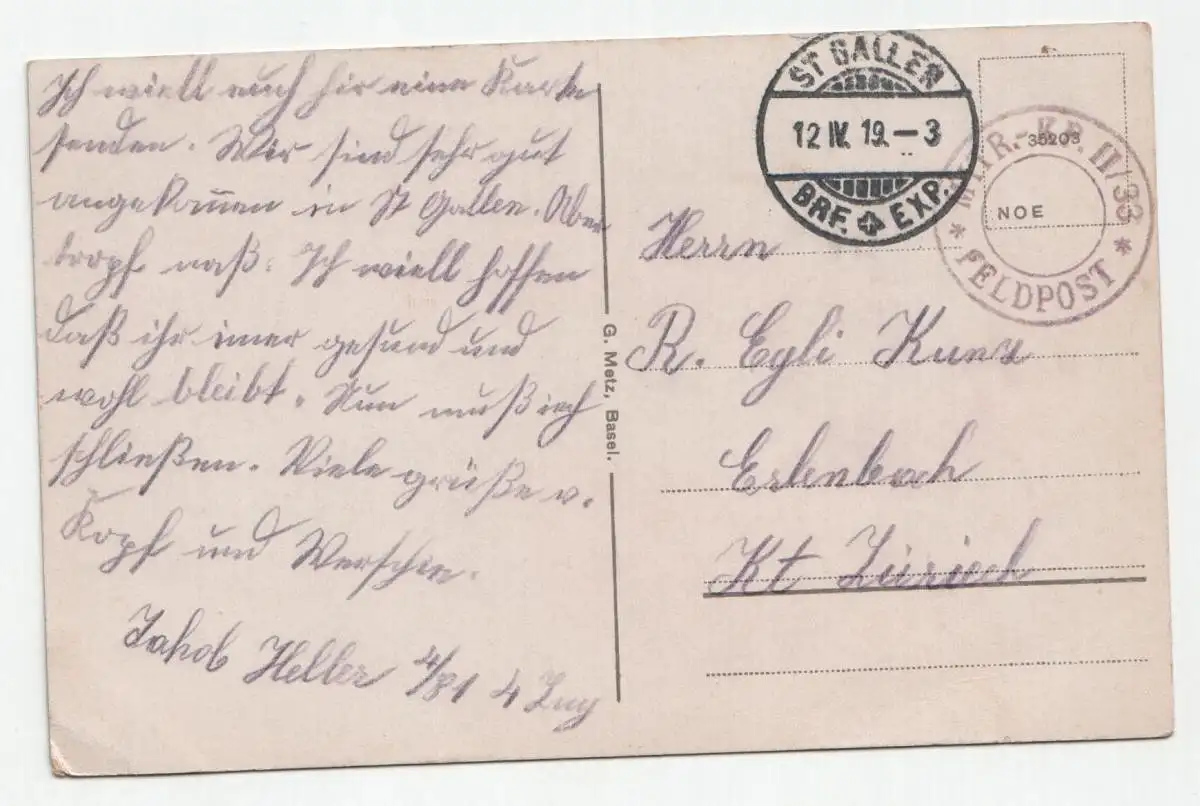 Ich wiell euch hir eine Karte
senden. Wir sind sehr gut
angekom̅en in St Gallen. Aber
tropf naß. Ich wiell hoffen
daß ihr im̅er gesund und
wohl bleibt. Nun muß ich
schließen. Viele grüße v.
Kopf und
Jakob Heller 4/81 4 Zug
G. Metz, Basel.
ST GALLEN
12 IV. 19. – 3
BRF. EXP.
35203
NOE
MITR.-KP. II/33
* FELDPOST *
Herrn
R. Egli Kunz
Erlenbach
Kt Züriech